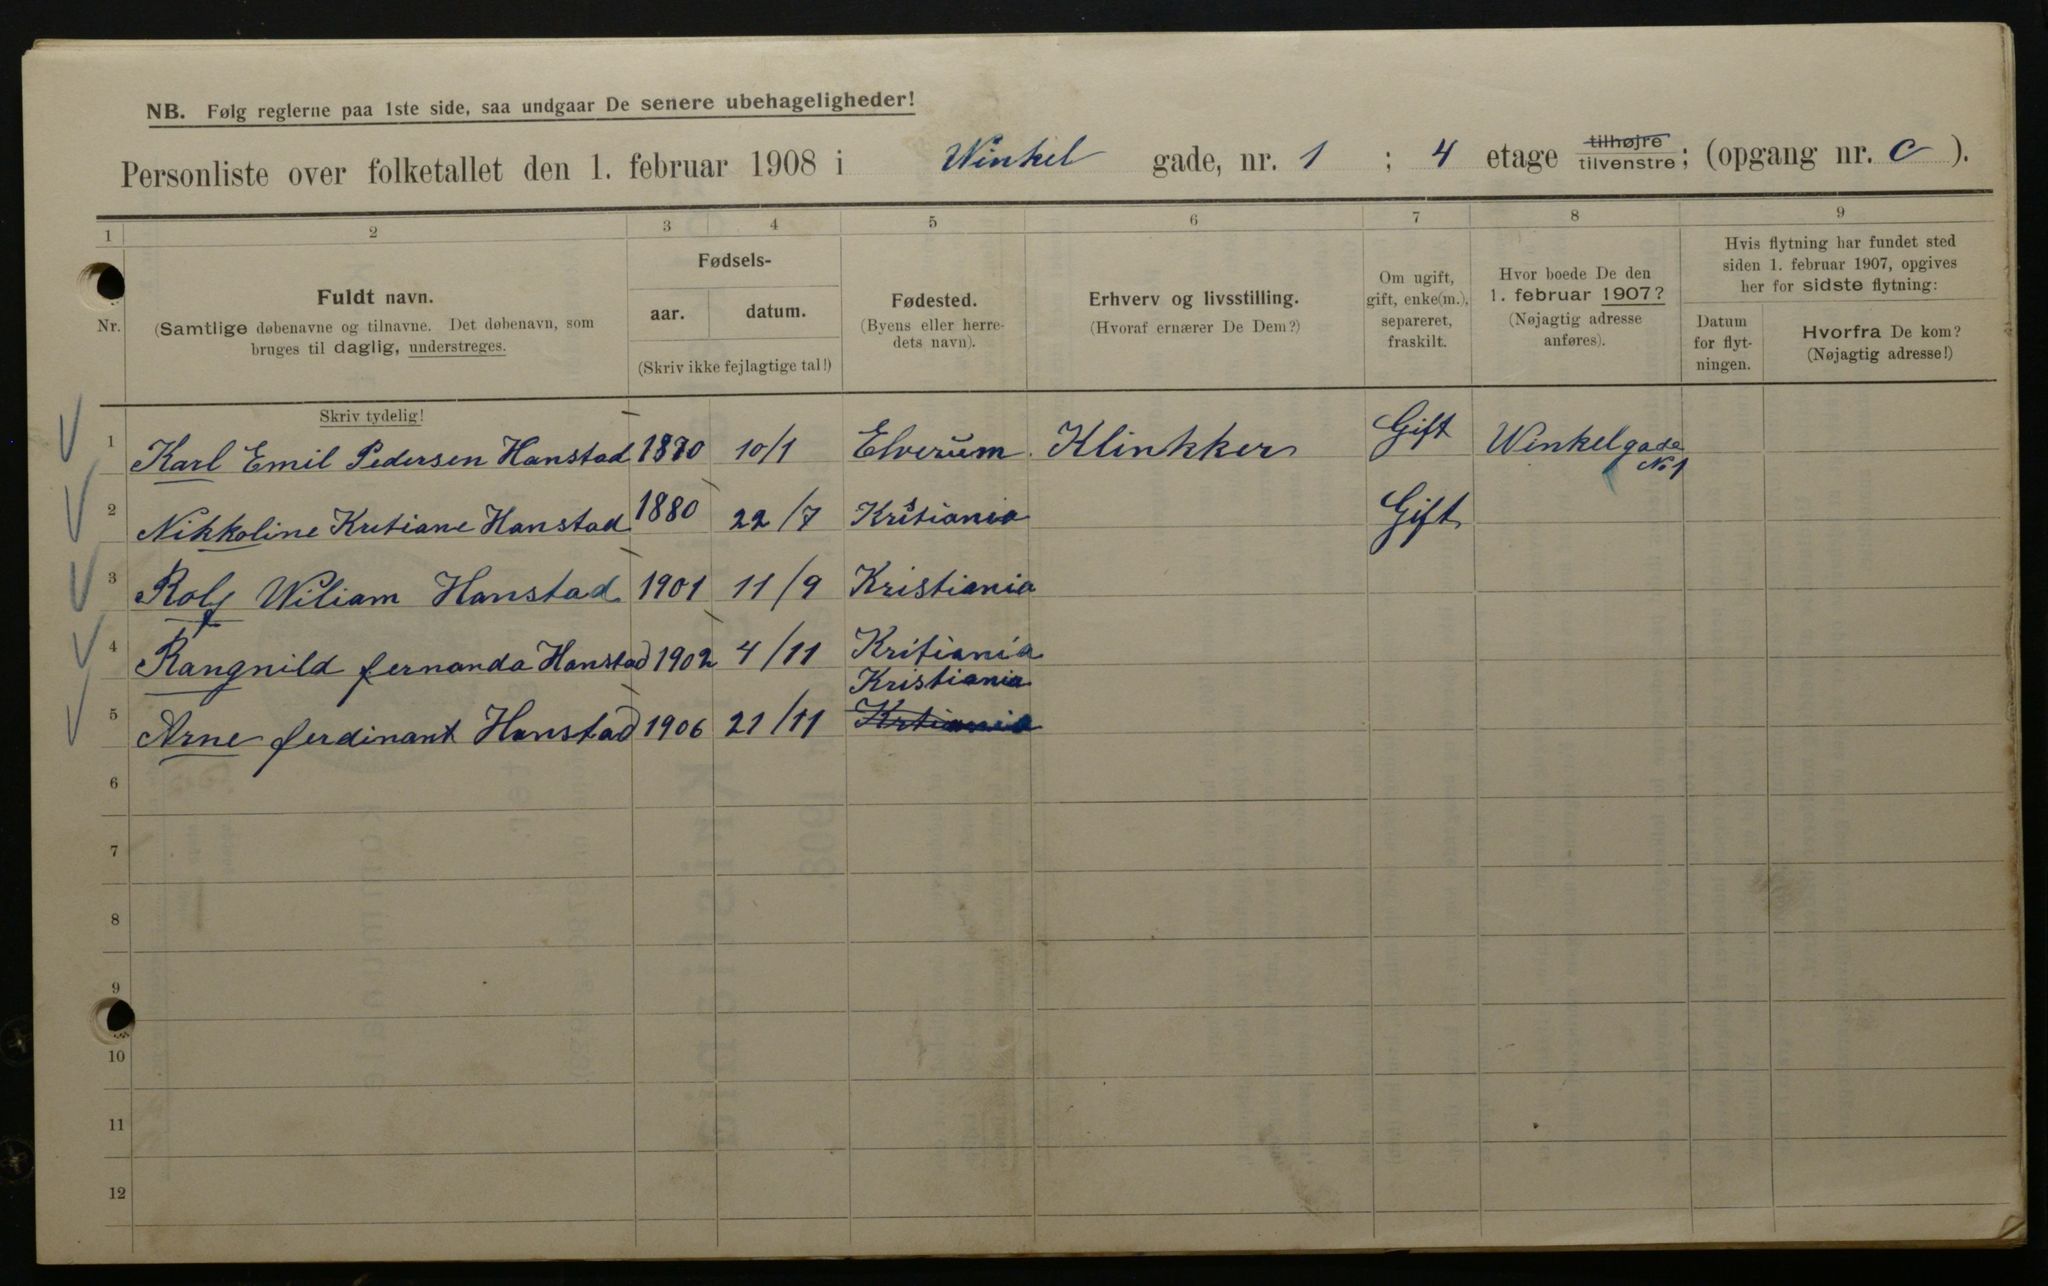 NB. Følg reglerne paa 1ste side, saa undgaar De senere ubehageligheder!
Personliste over folketallet den 1. februar 1908 i Winkel gade, nr. 1 ; 4 etage tilhøjre tilvenstre; (opgang nr. C ).
1 2 3 4 5 6 7 8 9
Nr.
Fuldt navn.
(Samtlige døbenavne og tilnavne. Det døbenavn, som
bruges til daglig, understreges.
Fødsels-
aar. datum.
(Skriv ikke fejlagtige tal!)
Fødested.
(Byens eller herre-
dets navn).
Erhverv og livsstilling.
(Hvoraf ernærer De Dem?)
Om ugift,
gift, enke(m.),
separeret,
fraskilt.
Hvor boede De den
1. februar 1907?
(Nøjagtig adresse
anføres).
Hvis flytning har fundet sted
siden 1. februar 1907, opgives
her for sidste flytning:
Datum
for flyt-
ningen.
Hvorfra De kom?
(Nøjagtig adresse!)
Skriv tydelig!
1 Karl Emil Pedersen Hanstad 1870 10/1 Elverum Klinkker Gift Winkelgade
No 1
2 Nikkoline Kretiane Hanstad 1880 22/7 Kristiania Gift
3 Rolf Wiliam Hanstad 1901 11/9 Kristiania
4 Rangnild fernanda Hanstad 1902 4/11 Kritiania
Kristiania
5 Arne ferdinant Hanstad 1906 21/11 Krtiania
6
7
8
9
10
11
12